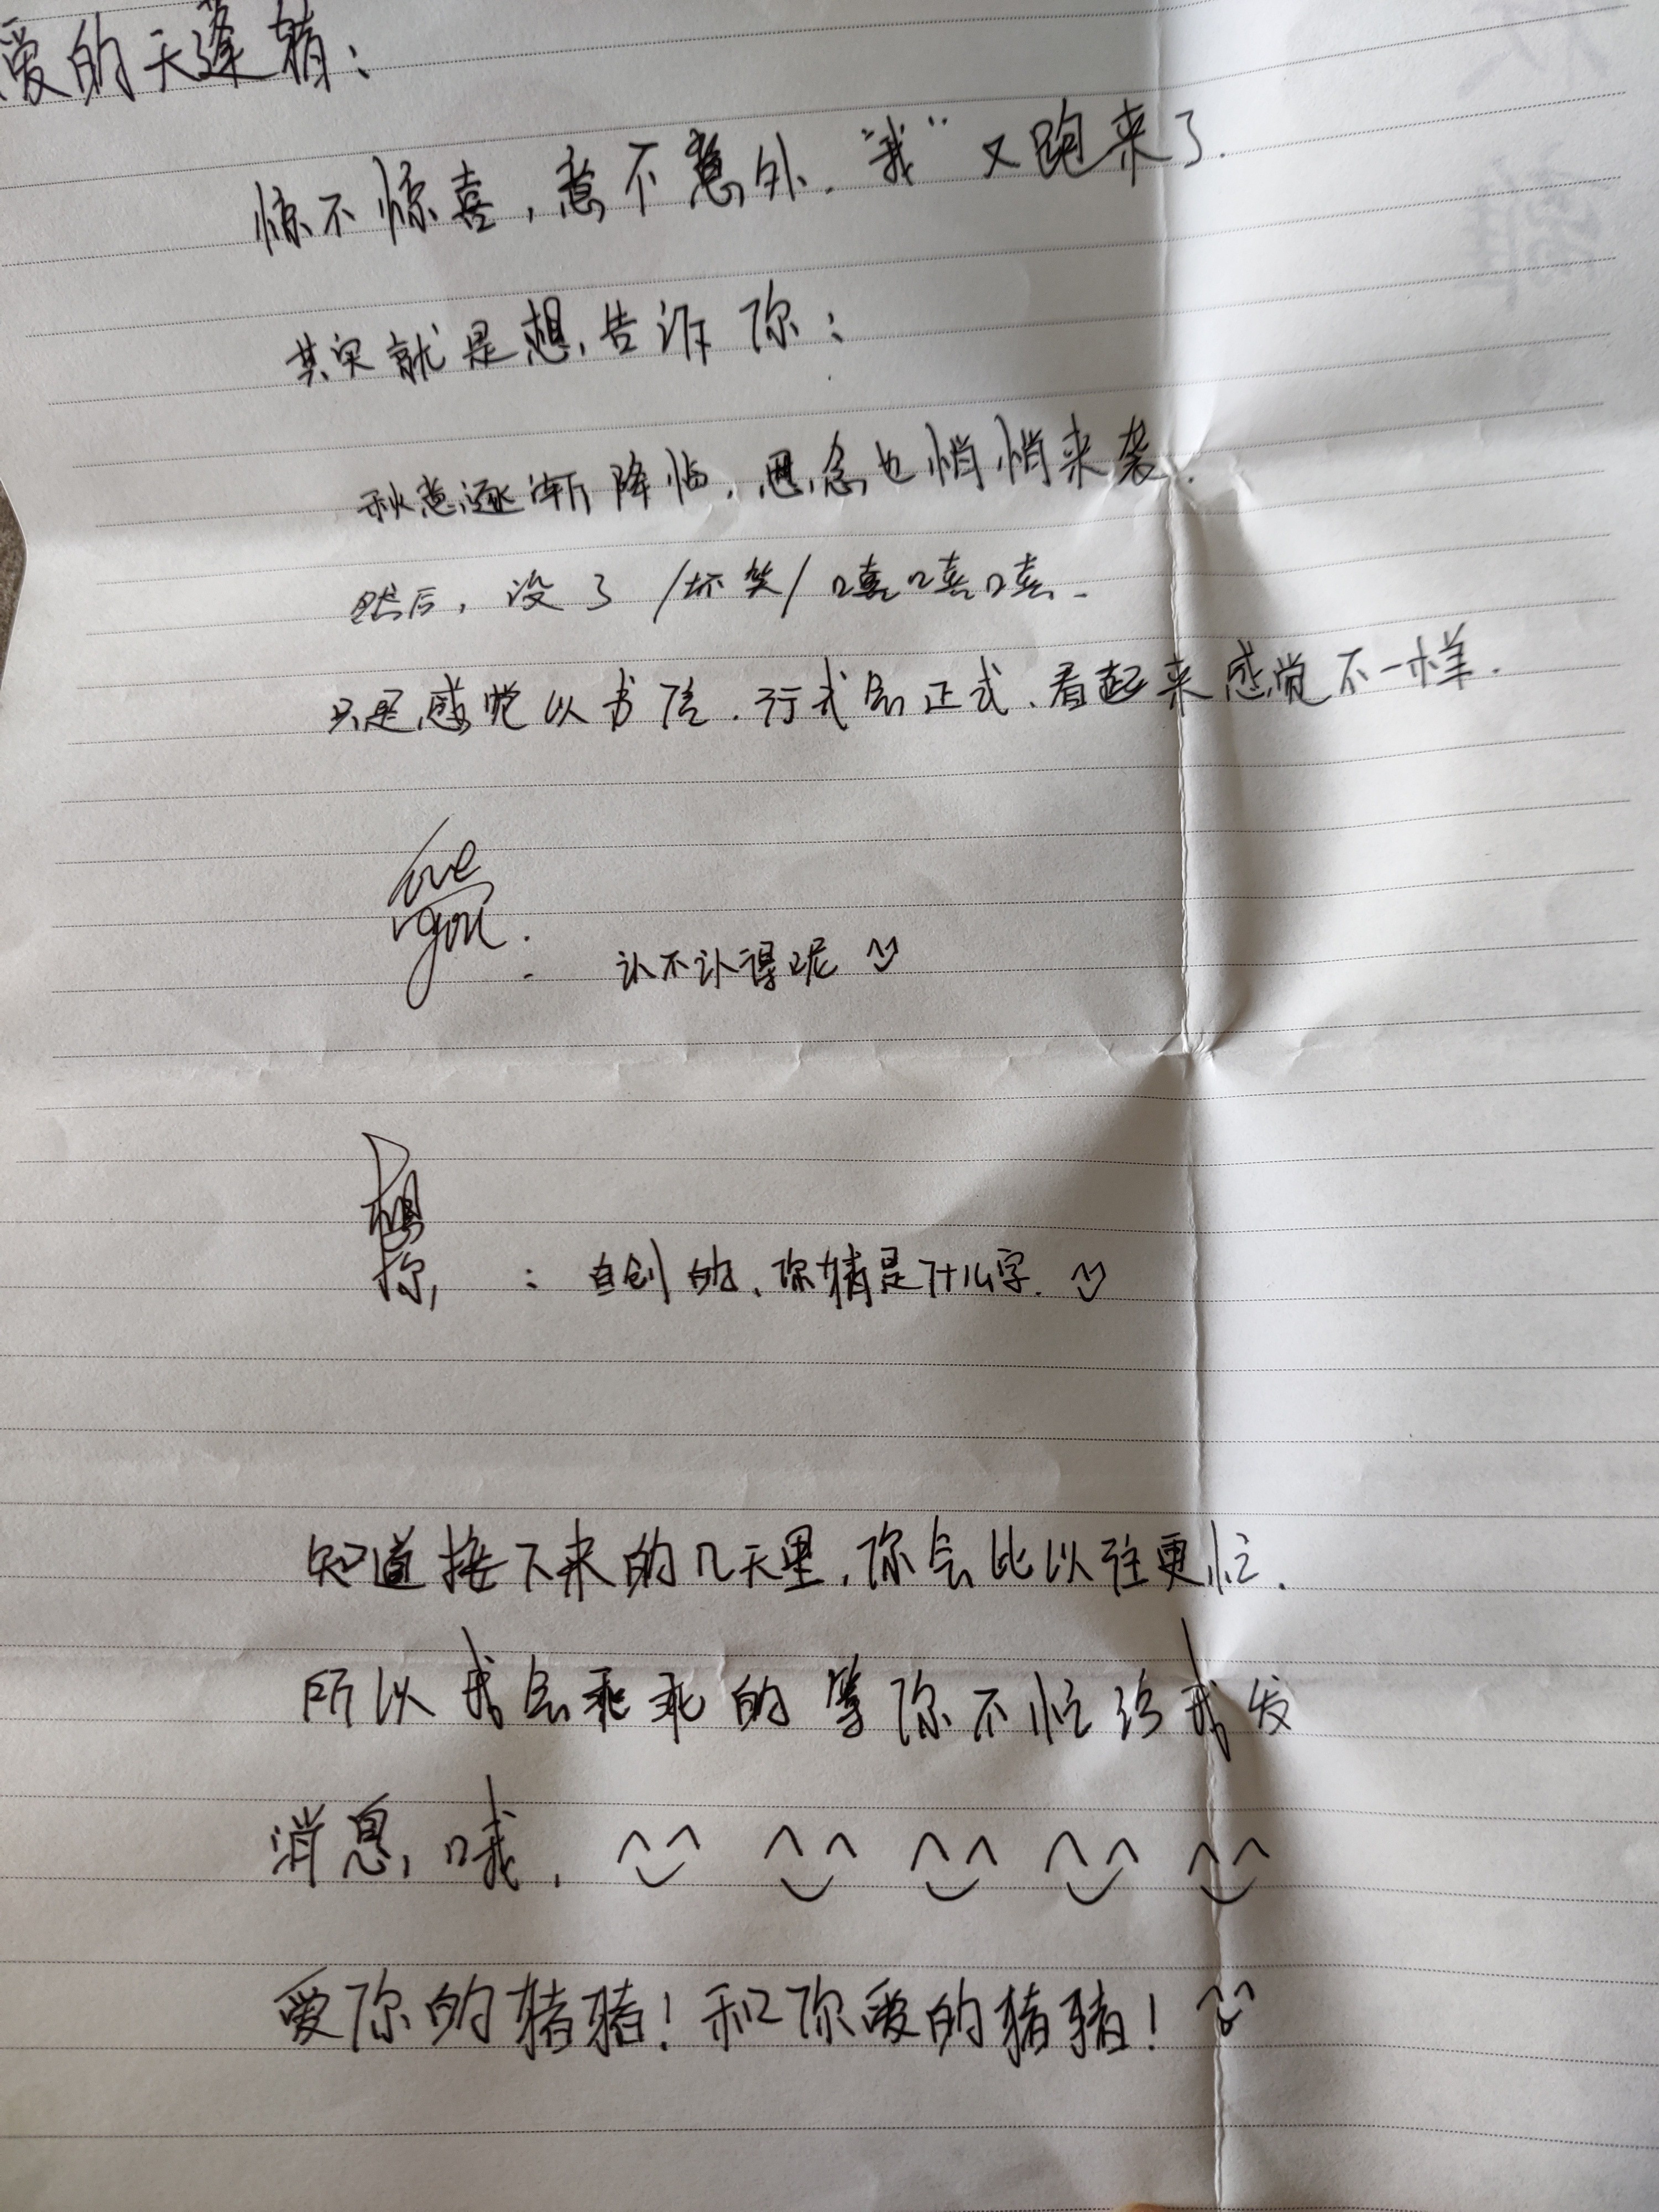 爱的天蓬猪：
惊不惊喜，意不意外．“我”又跑来了．
其实就是想告诉你：
秋意逐渐降临．思念也悄悄来袭．
然后，没了/坏笑/嘻嘻嘻．
只是感觉以书信．形式的正式、看起来感觉不一样．
love
you．
认不认得呢
想
你
：自创的、你猜是什么字．
知道接下来的几天里．你会比以往更忙．
所以我会乖乖的等你不忙给我发
消息哦．
爱你的猪猪！和你爱的猪猪！